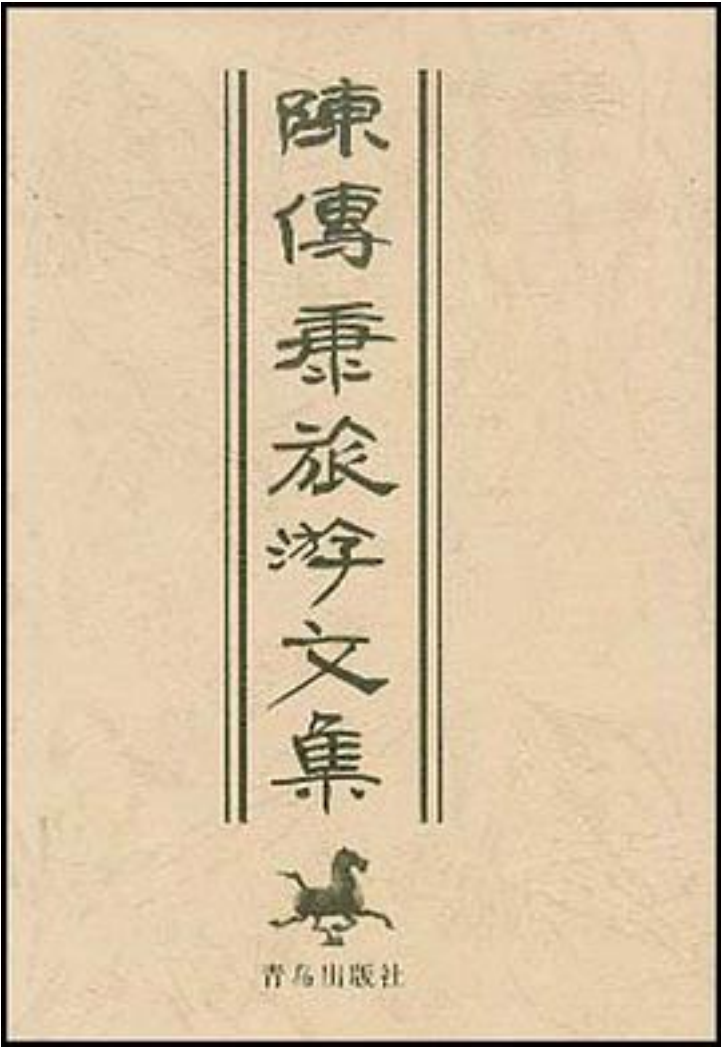 陳傳康旅游文集
青岛出版社